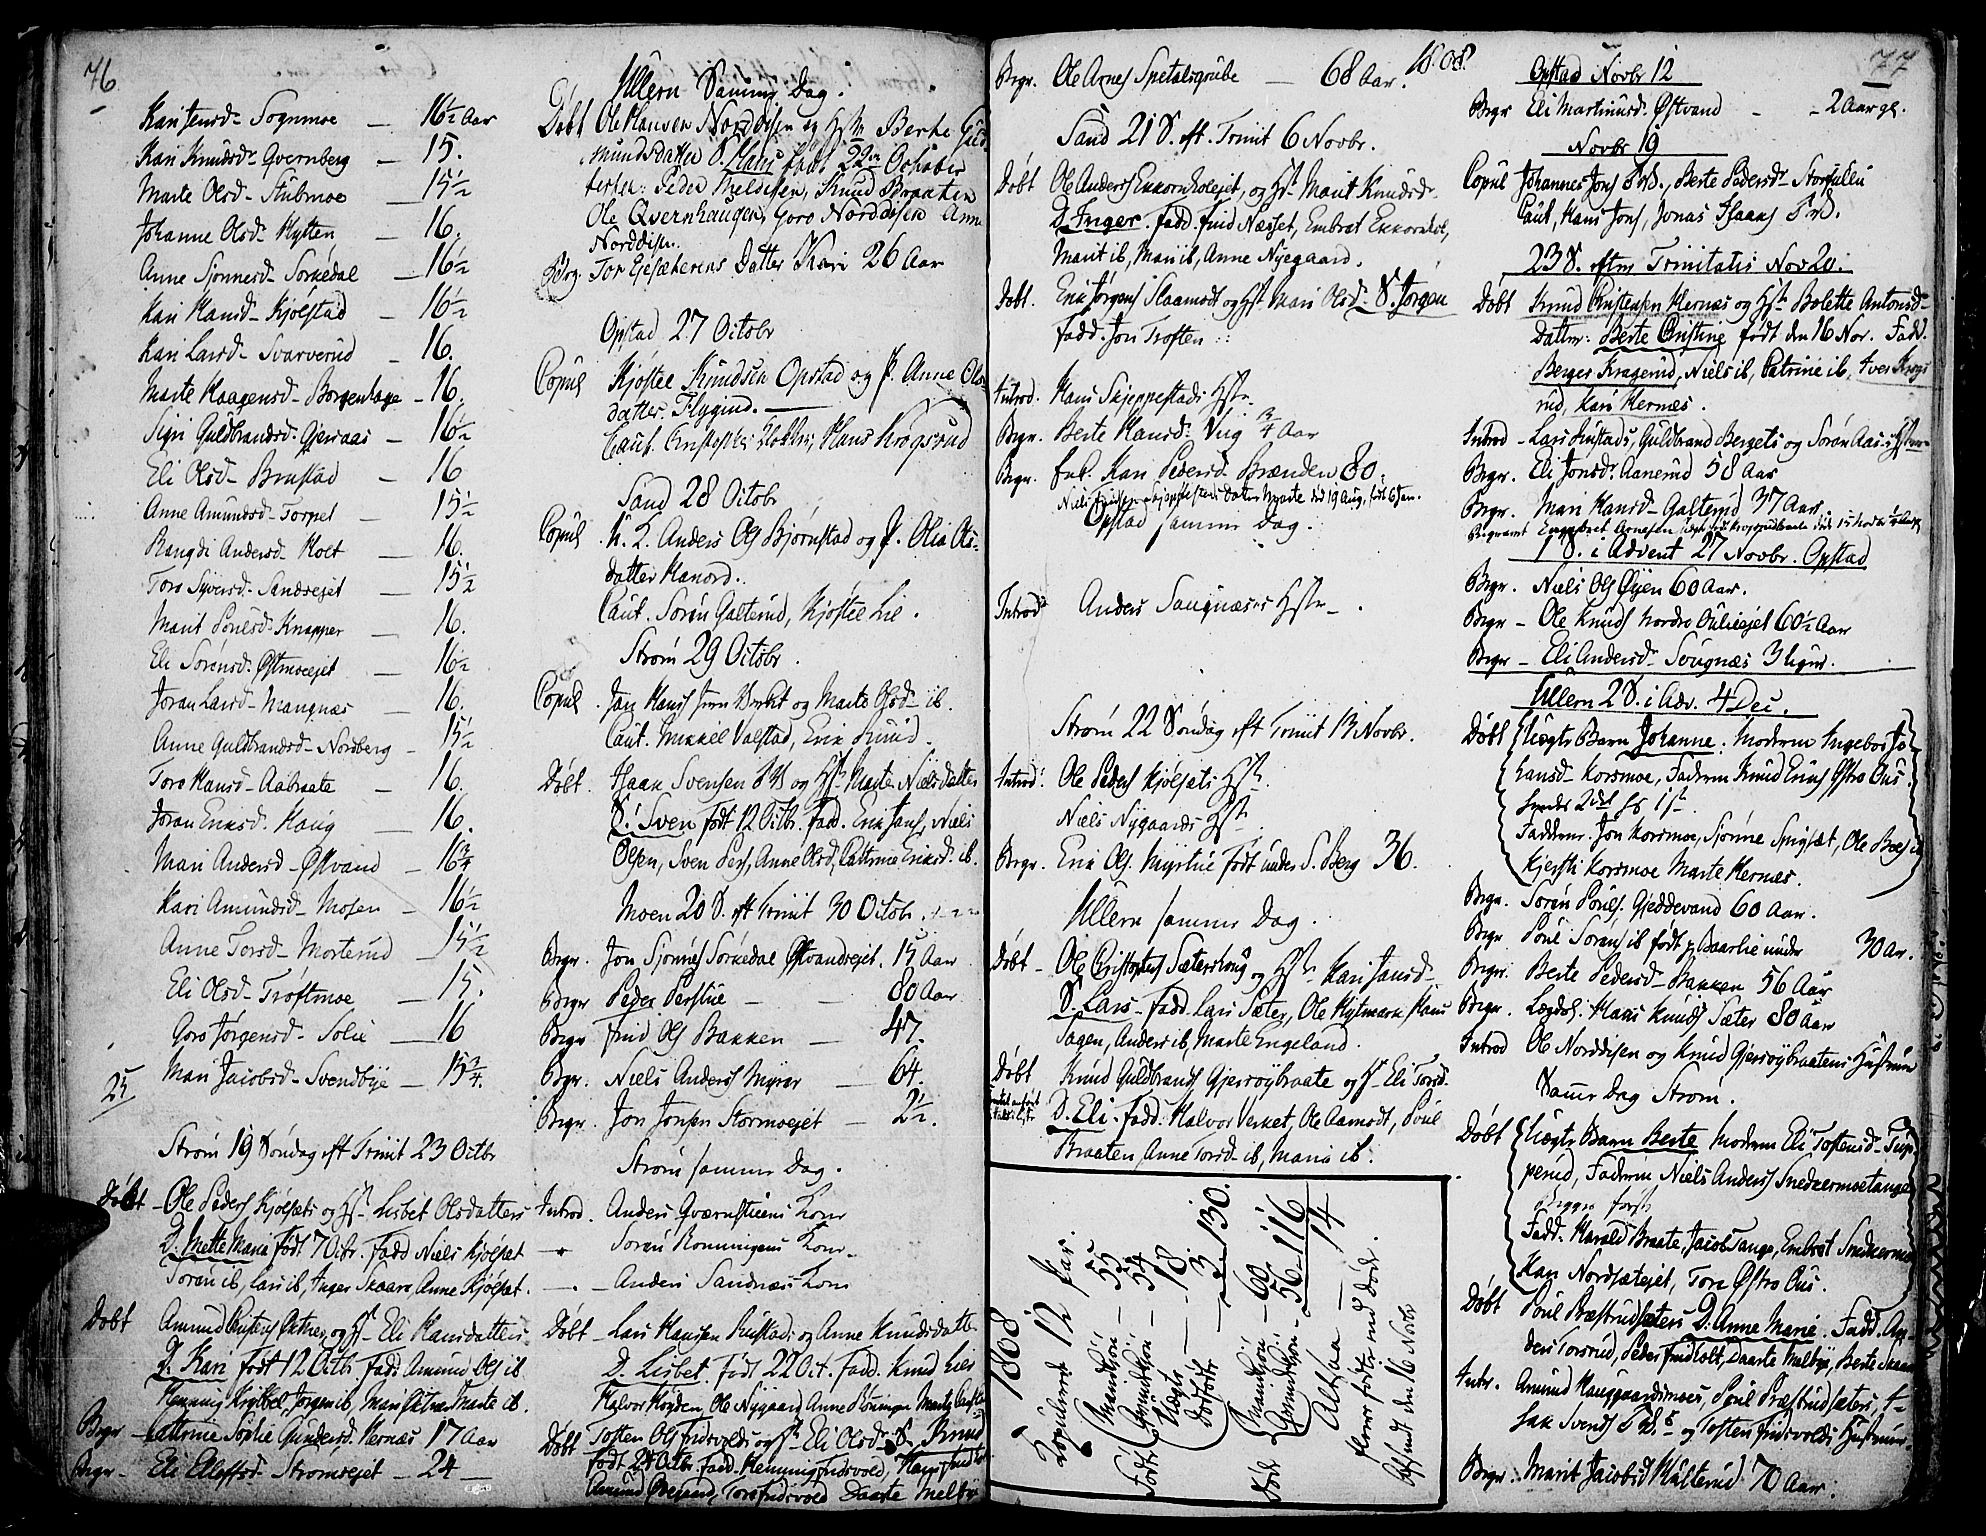 76
Kari Jensd. Sognmoe — 16½ Aar
Kari Knudsdr Qvernberg — 15.
Marte Olsd. Stubmoe — 15½
Johanne Olsd. Hytten — 16.
Anne Sjønnesd. Sorkedal — 16½
Kari Hansd. Kjølstad — 16½
Kari Larsd. Svarverud — 16.
Marte Haagensd. Borgenhage — 16.
Sigri Guldbrandsd. Gjersaas — 16½
Eli Olsd. Brustad — 16
Anne Amundsd. Torpet — 15½
Rangdi Andersd. Holt — 16.
Toro Syversd. Sandsejet — 15½
Marit Poulsd. Knapper — 16.
Eli Sørensd. Østmoeejet — 16½
Joran Larsd. Mangnæs — 16.
Anne Guldbrandsd. Nordberg — 15½
Toro Hansd. Aabraate — 16.
Joran Eriksd. Haug — 16.
Mari Andersd. Østvand — 16¾
Kari Amundsd. Mosen — 16½
Anne Torsd. Morterud — 15½
Eli Olsd. Trøftmoe — 15.
Goro Jørgensd. Solie — 16
Mari Jacobsd. Svendbye — 15¾.
25
Strøm 19 Søndag eft Trinit 23 Octbr
Døbt Ole Peders Kjølsæts og Hst. Lisbet Olsdatters
D. Mette Maria født 7 Octr. Fadd Niels Kjølsæt
Soren ib, Lars ib, Inger Skaarn, Anne Kjølsæt.
Døbt Amund og Hst. Eli Hansdatters
D. Kari født 12 Octbr. Fadd. Amund Ols ib
Henning Jorgen ib, Marte ib.
Begr. Cathrine Sophie Gundersd. Hernæs 17 Aar
Begr. Eli Eleffsd. Stromsejet — 24 —
Ullern Samme Dag.
Døbt Ole Hansen Norddisen og Hstr. Berte Gud-
mundsdatter S. Hans født 22de October
Peder Meldisen, Knud Braaten
Ole Qvernhaugen, Goro Norddisen Anne
Norddisn.
Begr. Tor Datter Kari 26 Aar
Opstad 27 Octobr
Copul Kjøstel Knudsen Opstad og P. Anne Ols-
datter Flygind.
Caut. Hans Krogsrud
Sand 28 Octobr
Copul U. K. Anders Ols Bjørnstad og P. Olia Ols-
datter Hanord.
Caut. Soren Galterud, Kjøstel Lie.
Strøm 29 Octobr.
Copul. Jan Hans Jern Verket og Marte Olsd. ib.
Caut. Mikkel Valstad, Erik Lund.
Døbt. Isaak Svensen og Hst. Marte Nielsdatter
S. Sven født 12 Octbr. Fadd. Erik Jans, Niels
Olsen, Sven Pers, Anne Olsd, Cathrine Eriksd. ib.
Moen 20 S. eft Trinit 30 Octobr.
Begr. Jon Sjønnes Sorkedal Østvandsejet. 15 Aar
Begr Peder Perstue — 80 Aar
Begr Frid Ols Bakken — 47.
Begr. Niels Anders Myrer — 64.
Begr. Jon Jonsen Stormoejet — 2½.
Strøm samme Dag.
Introd. Anders Qværnstuens Kone
Soren Ronningens Kone
Anders Sandnæs Kone
Døbt Lars Hansen Rustad og Anne Knudsdatter
D. Lisbet. født 22 Oct. Fadd. Knud Lier
Halvor Ole Nygaard Anne
Døbt Tosten Ols Fridsvolds og Hst. Eli Olsd. S. Knud
født Octbr Fadd. Henning Fridsvold,
Toro Fridsvold Daarte Melbye
1808.
Begr. Ole Arnes Spetalsgrube — 68 Aar.
Sand 21 S. eft. Trinit 6 Novbr.
Døbt Ole Anders Ekkornholejet, og Hst. Marit Knudsd.
D. Inger. Fadd. Frid Næsset, Embret Ekkornhol,
Marit ib, Mari ib, Anne Nyegaard.
Døbt. Erik Jørgens Slaamodt og Hst Mari Olsd. S. Jørgen
Fadd. Jon Troften
Introd. Hans Skjeppestads Hstr.
Begr. Berte Hansd. Vig ¾ Aar
Begr. Fat. Kari Pedersd. Brænden 80.
Opstad samme Dag.
Introd. Anders Sougnæses Hstr.
Strøm 22 Søndag eft Trinit 13 Novbr.
Introd. Ole Peders Kjølsæts Hstr
Niels Nygaards Hstr
Begr. Erik Ols. Myrstue født under S. Berg 36.
Ullern samme Dag.
Døbt Ole Christophers Sæterhaug og Hst. Kari Jansd.
S. Lars. Fadd. Lars Sæter, Ole Hans
Sagen, Anders ib, Marte Engeland.
Døbt Knud Guldbrands Gjersøybraate og H. Eli Torsd.
D. Eli. Fadd. Halvor Verket, Ole Aamodt, Poul
Braaten, Anne Torsd. ib, Maria ib.
1808
Kopulerede 12 Par.
Fødte Mandkiøn — 55
Qvindekiøn — 54
Uægte — 18
Dødfødte — 3. 130.
Døde Mandkiøn — 60
Qvindekiøn — 56. 116
Altsaa — 14
flere fødte end døde.
Afsendt den 16 Novbr
77
Opstad Novbr 12
Begr Eli Martinusd. Østvand — 2 Aar gl.
Novbr 19
Copul Johannes Jons, Berte Pedersd. Storfulu
Caut. Hans Jons, Jonas Isaaks
23 S. efter Trinitatis Nov 20.
Døbt Knud Christensen Hernæs og Hstr Bolette Antonsd-
datter: Berte Christine født den 16 Nov. Fadd.
Berger Kragerud, Niels ib, Catrine ib, Iver Krogs-
rud, Kari Hernæs.
Introd — Lars Rustads, Guldbrand Bergets og Soren Aas's Hstr
Begr. Eli Jonsdr. Aanerud 58 Aar
Begr. Mari Hansd. Galterud 37 Aar.
1 S. i Advent 27 Novbr. Opstad
Begr. Niels Ols Øyen 60 Aar.
Begr — Ole Knuds Nordre Ouliejet 60½ Aar
Begr — Eli Andersd. Sougnæs 3 Uger.
Ullern 2 S. i Adv. 4 Dec.
Døbt Uægte Barn Johanne. Moderen Ingebor Jo-
hansd. Korsmoe, Faderen Knud Eriks Østre Ous
hendes 2det hs 1ste
Faddere. Jon Korsmoe, Sjønne Ole Boes ib
Kjersti Korsmoe Marte Hernæs.
Begr. Soren Pouls. Gjeddevand 60 Aar.
Begr Poul Sorens ib født p. Baarlie under 30 Aar.
Begr. Berte Pedersd. Bakken 56 Aar
Begr. Lægdsl. Hans Knuds Sæter 80 Aar
Introd Ole Norddisen og Knud Gjersøybraatens Hustruer
Samme Dag Strøm.
Døbt Uægte Barn Berte Moderen Eli Tostensd. Tup-
perud, Faderen Niels Anders Snedkermoetangen
Begges første
Fadd. Harald Braate, Jacob Tange, Embret Snedkermoe
Kari Nordsætejet, Tore Østre Ous.
Døbt Poul Præstrudsæters D. Anne Marie. Fadd. An-
ders Torsrud, Peder Fridholt, Daarte Melbye, Berte Skaarn
Intr. Amund Haugaardsmoes, Poul Præstrudsæters, I-
sak Svends og Tosten Fridsvolds Hustruer.
Begr. Marit Jacobsd Kulterud 70 Aar.